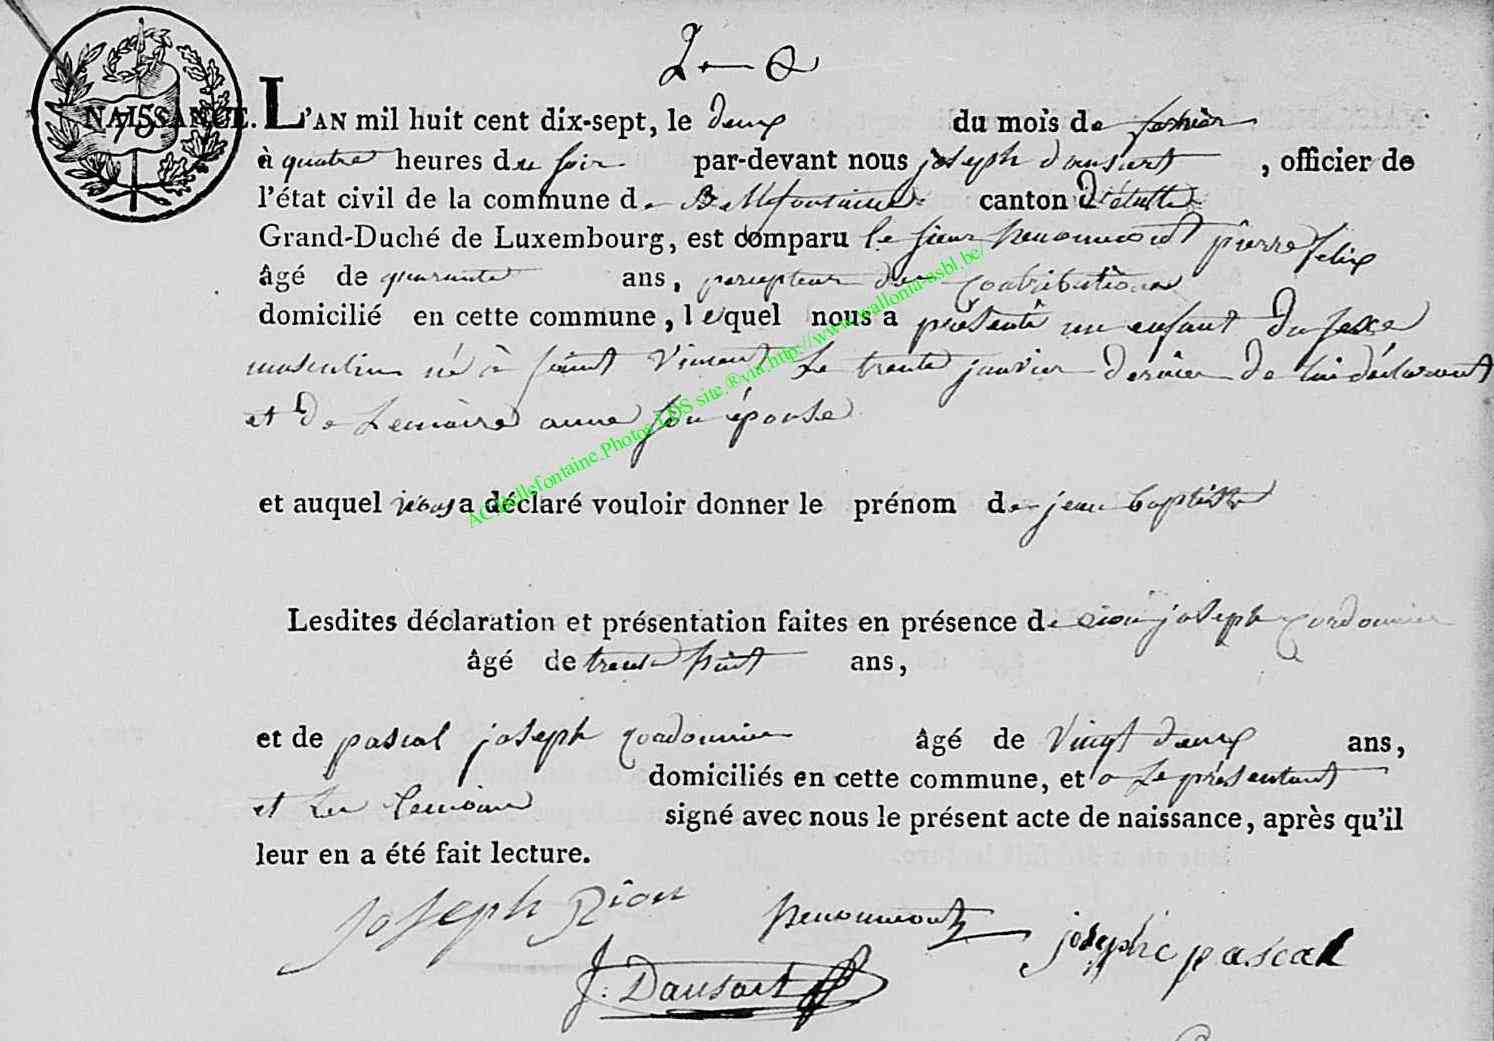 NAISSANCE.
75
L'AN mil huit cent dix-sept, le deux du mois de fevrier
à quatre heures du soir par-devant nous joseph dansart, officier de
l'état civil de la commune de Bellefontaine canton d'étalle
Grand-Duché de Luxembourg, est comparu le sieur henoumont pierre felix
âgé de quarante ans, percepteur des contributions
domicilié en cette commune, lequel nous a présenté un enfant du sexe
masculin né à saint Vincent le trente janvier dernier de lui déclarant
et de Lemoine anne son épouse
et auquel il nous a déclaré vouloir donner le prénom de jean baptiste
Lesdites déclaration et présentation faites en présence de rion joseph cordonnier
âgé de trente huit ans,
et de pascal joseph cordonnier âgé de vingt deux ans,
domiciliés en cette commune, et le présentant
et les temoins signé avec nous le présent acte de naissance, après qu'il
leur en a été fait lecture.
joseph Rion henoumont josephe pascal
J. Dansart
AC Bellefontaine.Photos LDS site.®via http://www.walloma-asbl.be/